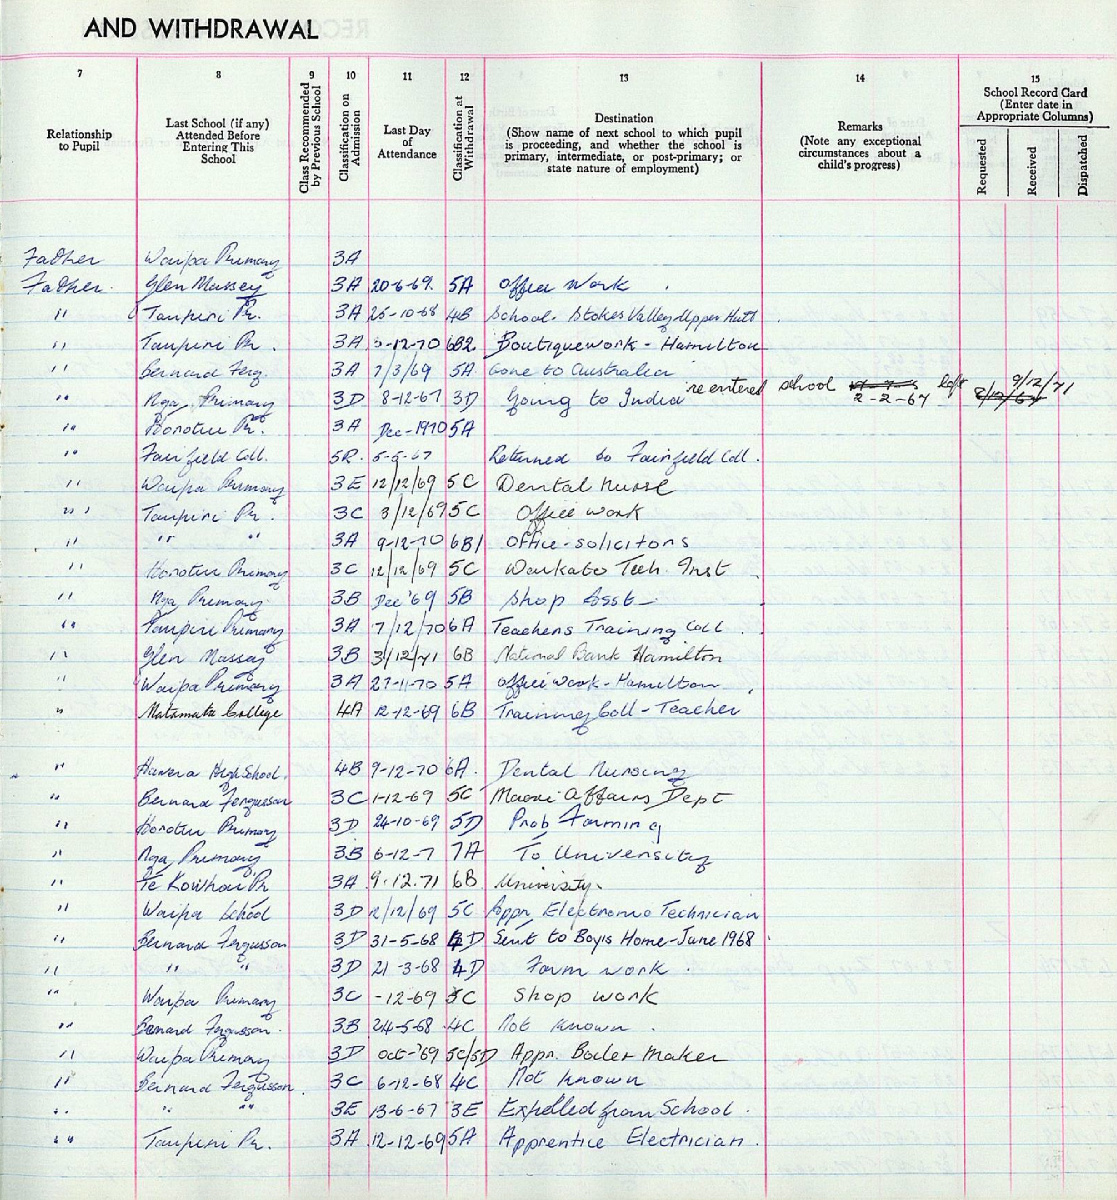 AND WITHDRAWAL
7 8 9 10 11 12 13 14 15
Relationship to Pupil
Last School (if any) Attended Before Entering This School
Class Recommended by Previous School
Classification on Admission
Last Day of Attendance
Classification at Withdrawal
Destination (Show name of next school to which pupil is proceeding, and whether the school is primary, intermediate, or post-primary; or state nature of employment)
Remarks (Note any exceptional circumstances about a child's progress)
School Record Card (Enter date in Appropriate Columns)
Requested
Received
Dispatched
Father Waipa Primary 3A
Father Glen Massey 3A 20-6-69. 5A Office Work
" Taupiri Pr. 3A 25-10-68 4B School. Stokes Valley Upper Hutt
" Taupiri Pr. 3A -12-70 6B2 Boutique work - Hamilton
" Bernard Ferg. 3A 7/3/69 5A Gone to Australia
" Nga. Primary 3D 8-12-67 3D Going to India re entered school 2-2-67 left 9/12/71
" Horotiu Pr. 3A Dec-1970 5A
" Fairfield Coll. 5R. 5-5-67 Returned to Fairfield Coll.
" Waipa Primary 3E 12/12/69 5C Dental Nurse
" Taupiri Pr. 3C 3/12/69 5C Office work
" " " 3A 9-12-70 6B1 Office-solicitors
" Horotiu Primary 3C 12/12/69 5C Waikato Tech. Inst
" Nga Primary 3B Dec '69 5B Shop Asst
" Taupiri Primary 3A 7/12/70 6A Teachers Training Coll.
" Glen Massey 3B 3/12/71 6B National Bank Hamilton
" Waipa Primary 3A 27-11-70 5A office work - Hamilton
" Matamata College 4A 12-12-69 6B Training Coll - Teacher
" Hawera High School. 4B 9-12-70 6A. Dental Nursing
" Bernard Fergusson 3C 1-12-69 5C Maori Affairs Dept
" Horotiu Primary 3D 24-10-69 5D Prob Farming
" Nga Primary 3B 6-12-7 7A To University
" Te Kowhai Pr 3A 9.12.71 6B University.
" Waipa School 3D 12/12/69 5C Appr. Electronic Technician
" Bernard Fergusson 3D 31-5-68 4D Sent to Boys Home - June 1968
" " " 3D 21-3-68 4D Farm work.
" Waipa Primary 3C -12-69 5C Shop work
" Bernard Fergusson. 3B 24-5-68 4C Not known.
" Waipa Primary 3D Oct-'69 5C/5D Appr. Boiler Maker
" Bernard Fergusson. 3C 6-12-68 4C Not known
" " " 3E 13-6-67 3E Expelled from School.
" Taupiri Pr. 3A 12-12-69 5A Apprentice Electrician.